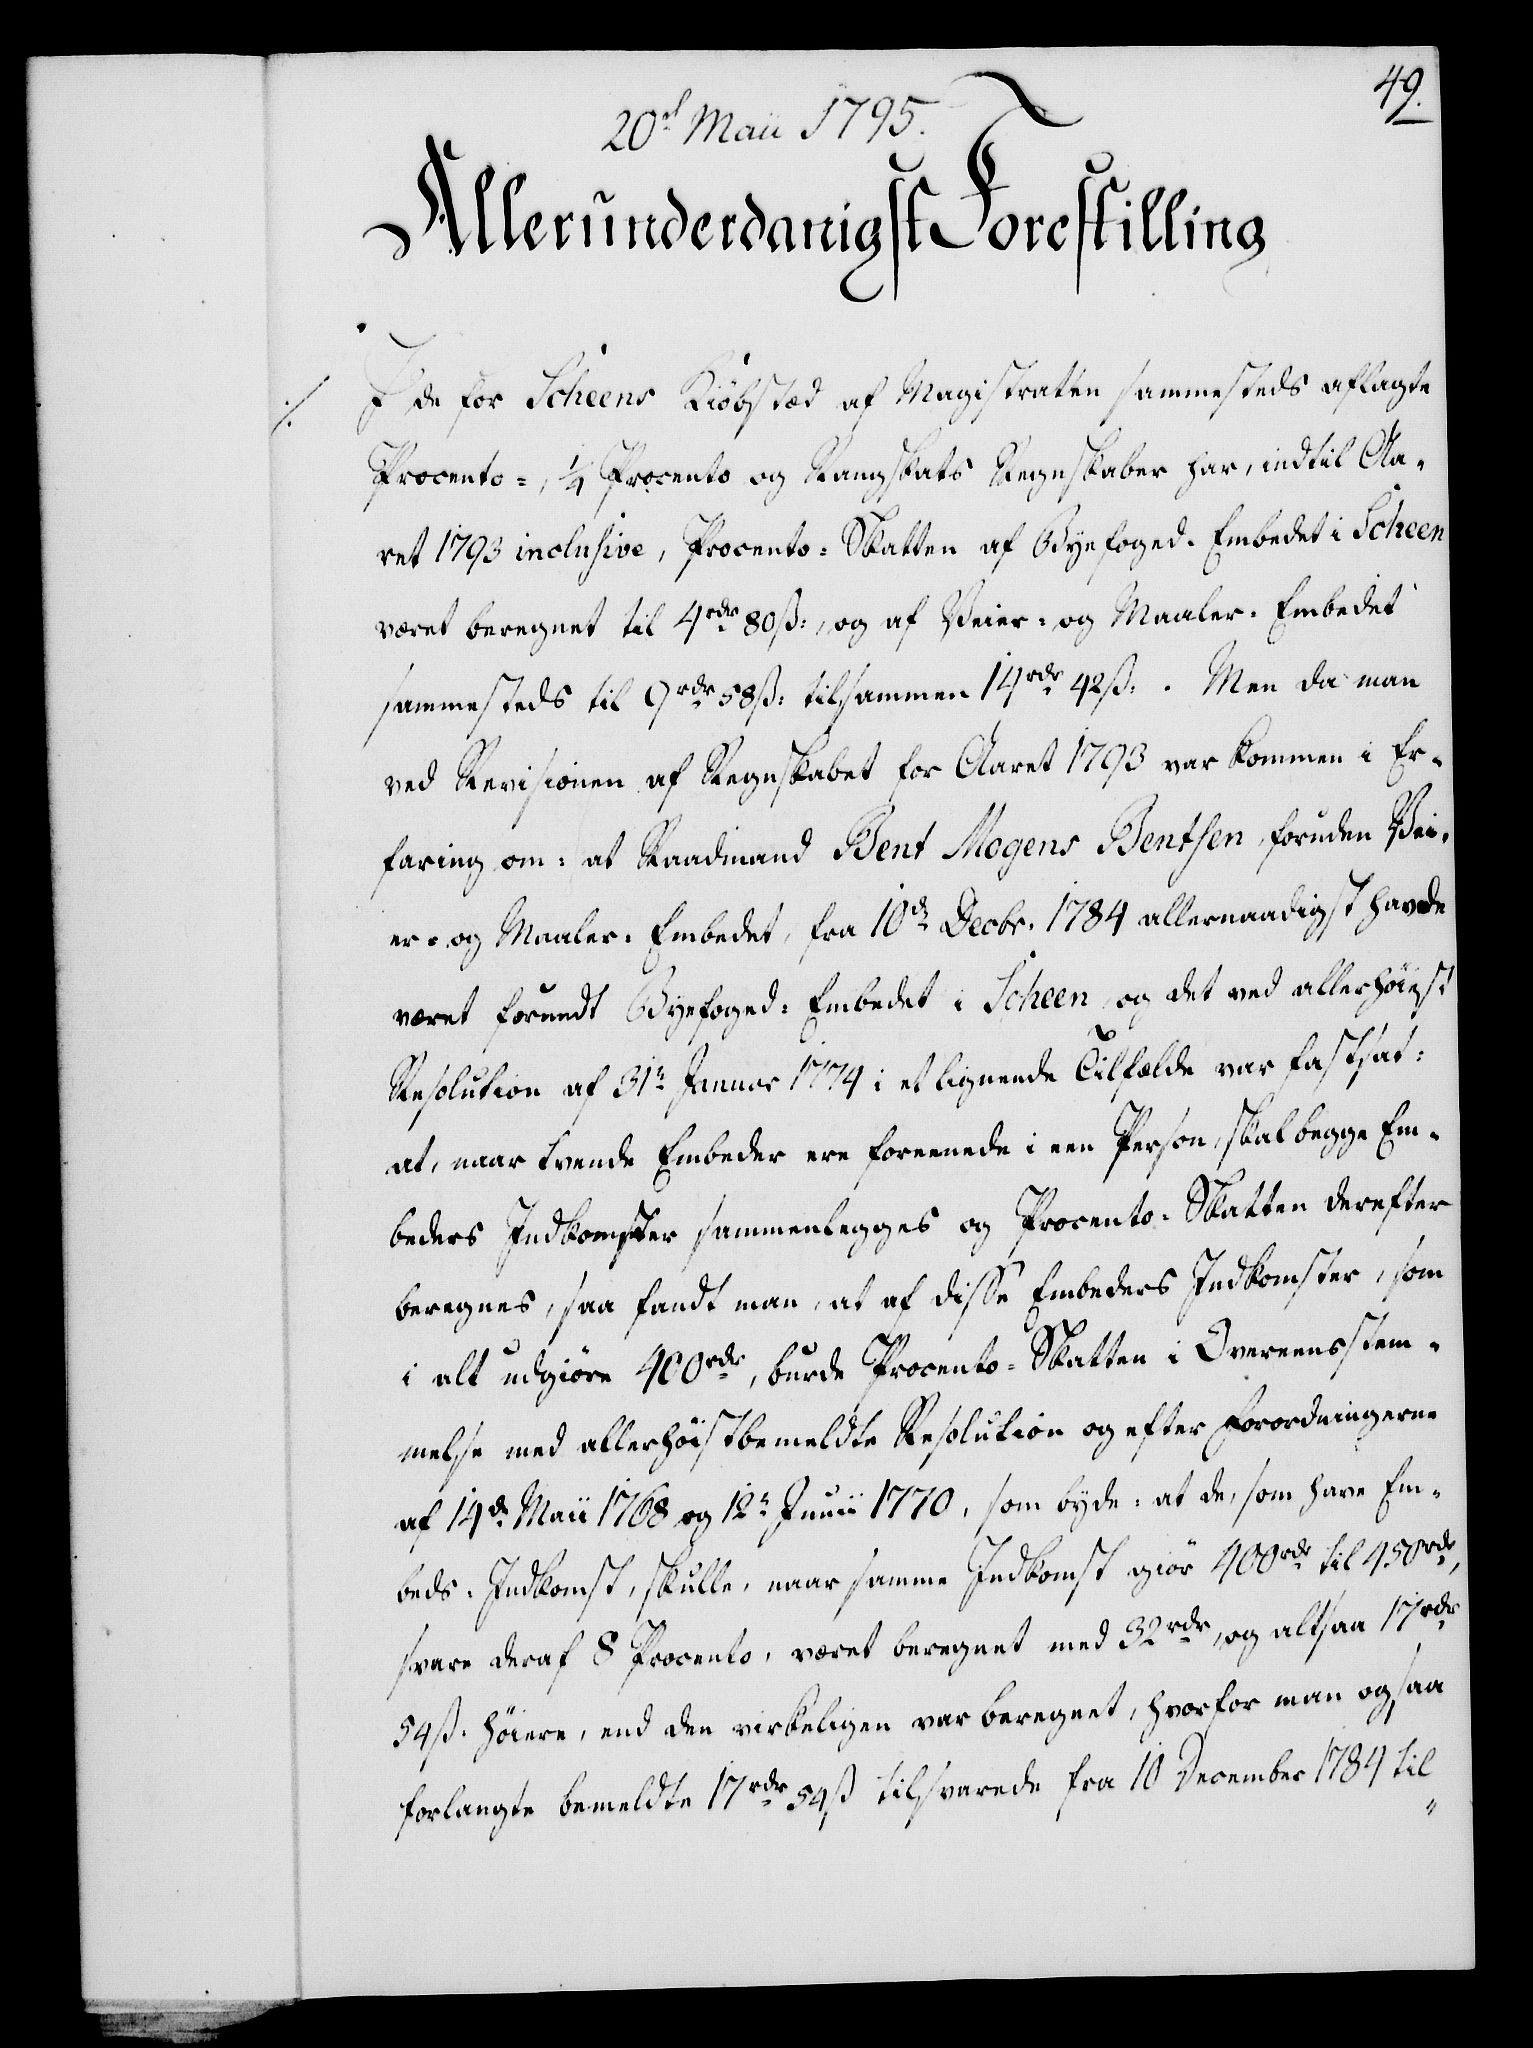 49.
20d Maii 1795.
Allerunderdanigst Forestilling
./. I de for Scheens Kiöbstæd af Magistraten sammesteds aflagte
Procento-, 1/4 Procento og Rangskats Regnskaber har, indtil Aa-
ret 1793 inclusive, Procento-Skatten af Byefoged-Embedet i Scheen
været beregnet til 4rdr 80ß:, og af Veier- og Maaler-Embedet
sammesteds til 9rdr 58ß: tilsammen 14rdr 42ß:. Men da man
ved Revisionen af Regnskabet for Aaret 1793 var kommen i Er-
faring om: at Raadmand Bent Mogens Bentsen, foruden Vei-
er- og Maaler-Embedet, fra 10d Decbr. 1784 allernaadigst havde
været forundt Byefoged-Embedet i Scheen, og det ved allerhöiest
Resolution af 31n Januar 1774 i et lignende Tilfælde var fastsat:
at, naar tvende Embeder ere foreenede i een Person, skal begge Em-
beders Indkomster sammenlegges og Procento-Skatten derefter
beregnes, saa fandt man, at af disse Embeders Indkomster, som
i alt udgiöre 400rdr, burde Procento-Skatten i Overeensstem-
melse med allerhöistbemeldte Resolution og efter Forordningerne
af 14d Maii 1768 og 12n Junii 1770, som byde: at de, som have Em-
beds-Indkomst, skulle, naar samme Indkomst giör 400rdr til 450rdr,
svare deraf 8 Procento, været beregnet med 32rdr, og altsaa 17rdr
54ß. höiere, end den virkeligen var beregnet, hvorfor man ogsaa
forlangte bemeldte 17rdr 54ß tilsvarede fra 10 December 1784 til
"